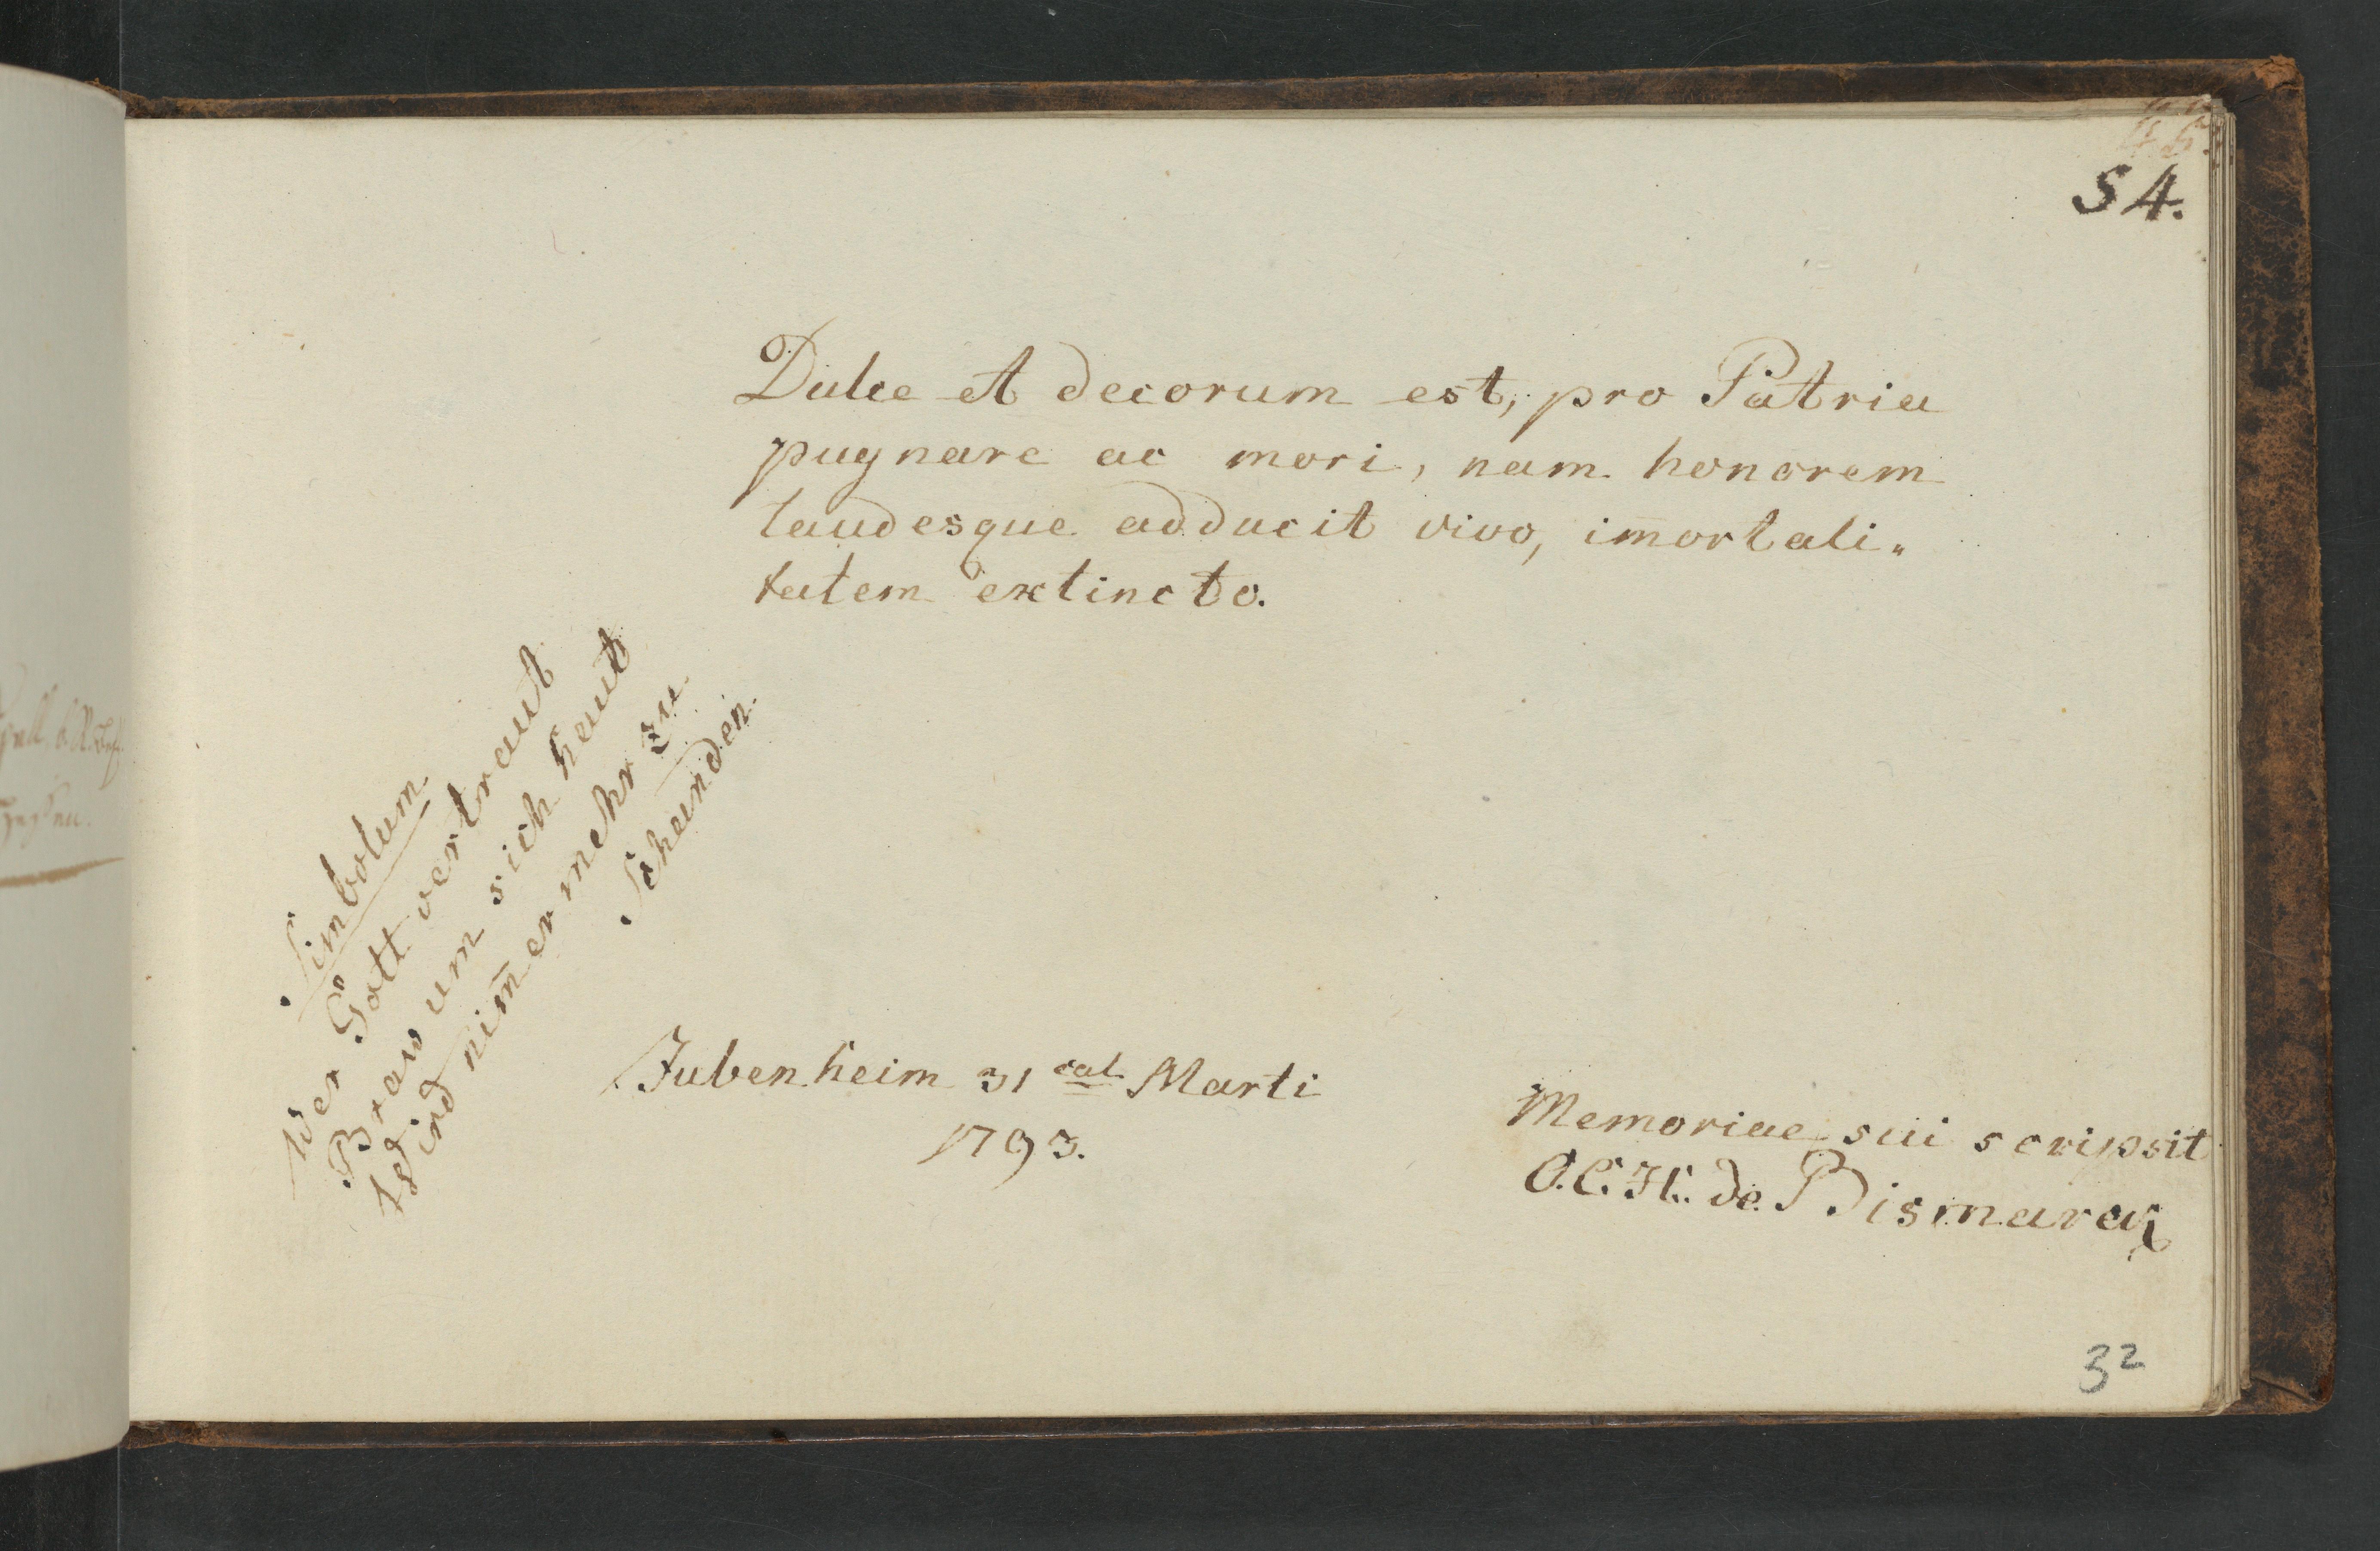 54.
Dulce et decorum est, pro Patria
pugnare ac mori, nam honorem
laudesque adducit vivo, im̄ortali„
tatem extincto.
Simbolum.
Wer Gott vertraut
Braw um sich haut
Ist nim̄ermehr zu
Schanden.
Jubenheim 31 cal. Marti
1793.
Memoriae sui scripsit
O.C.H. de Bismarck
32